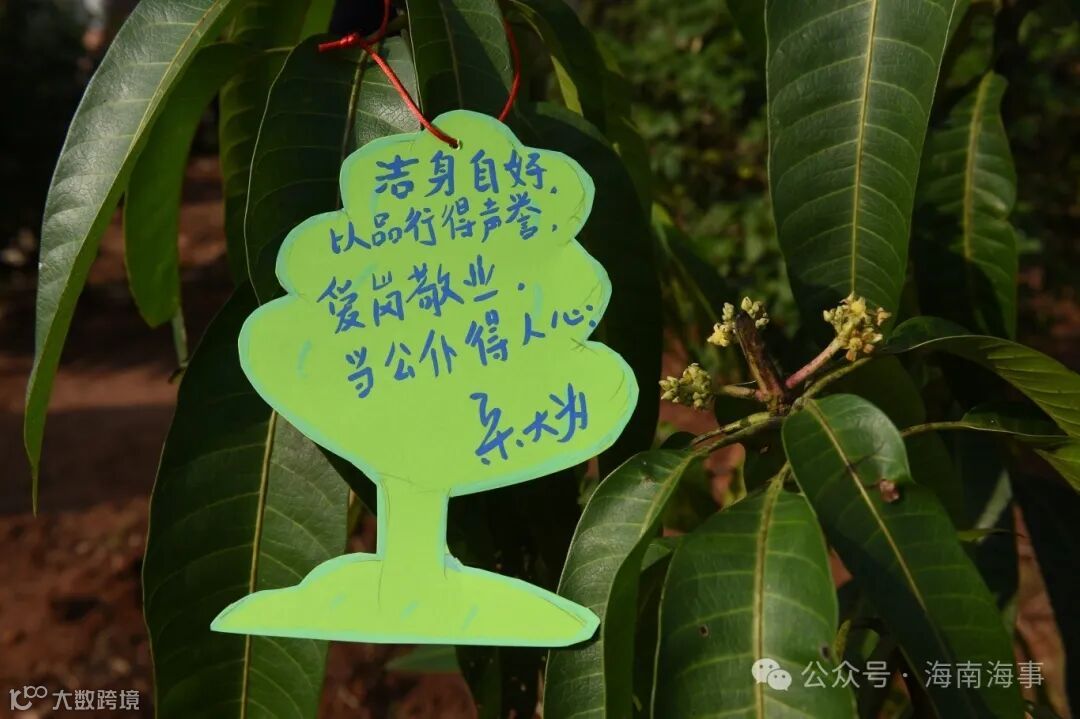 洁身自好，
以品行得声誉，
爱岗敬业．
当公仆得人心；
大为
100 大数跨境
公众号·海南海事